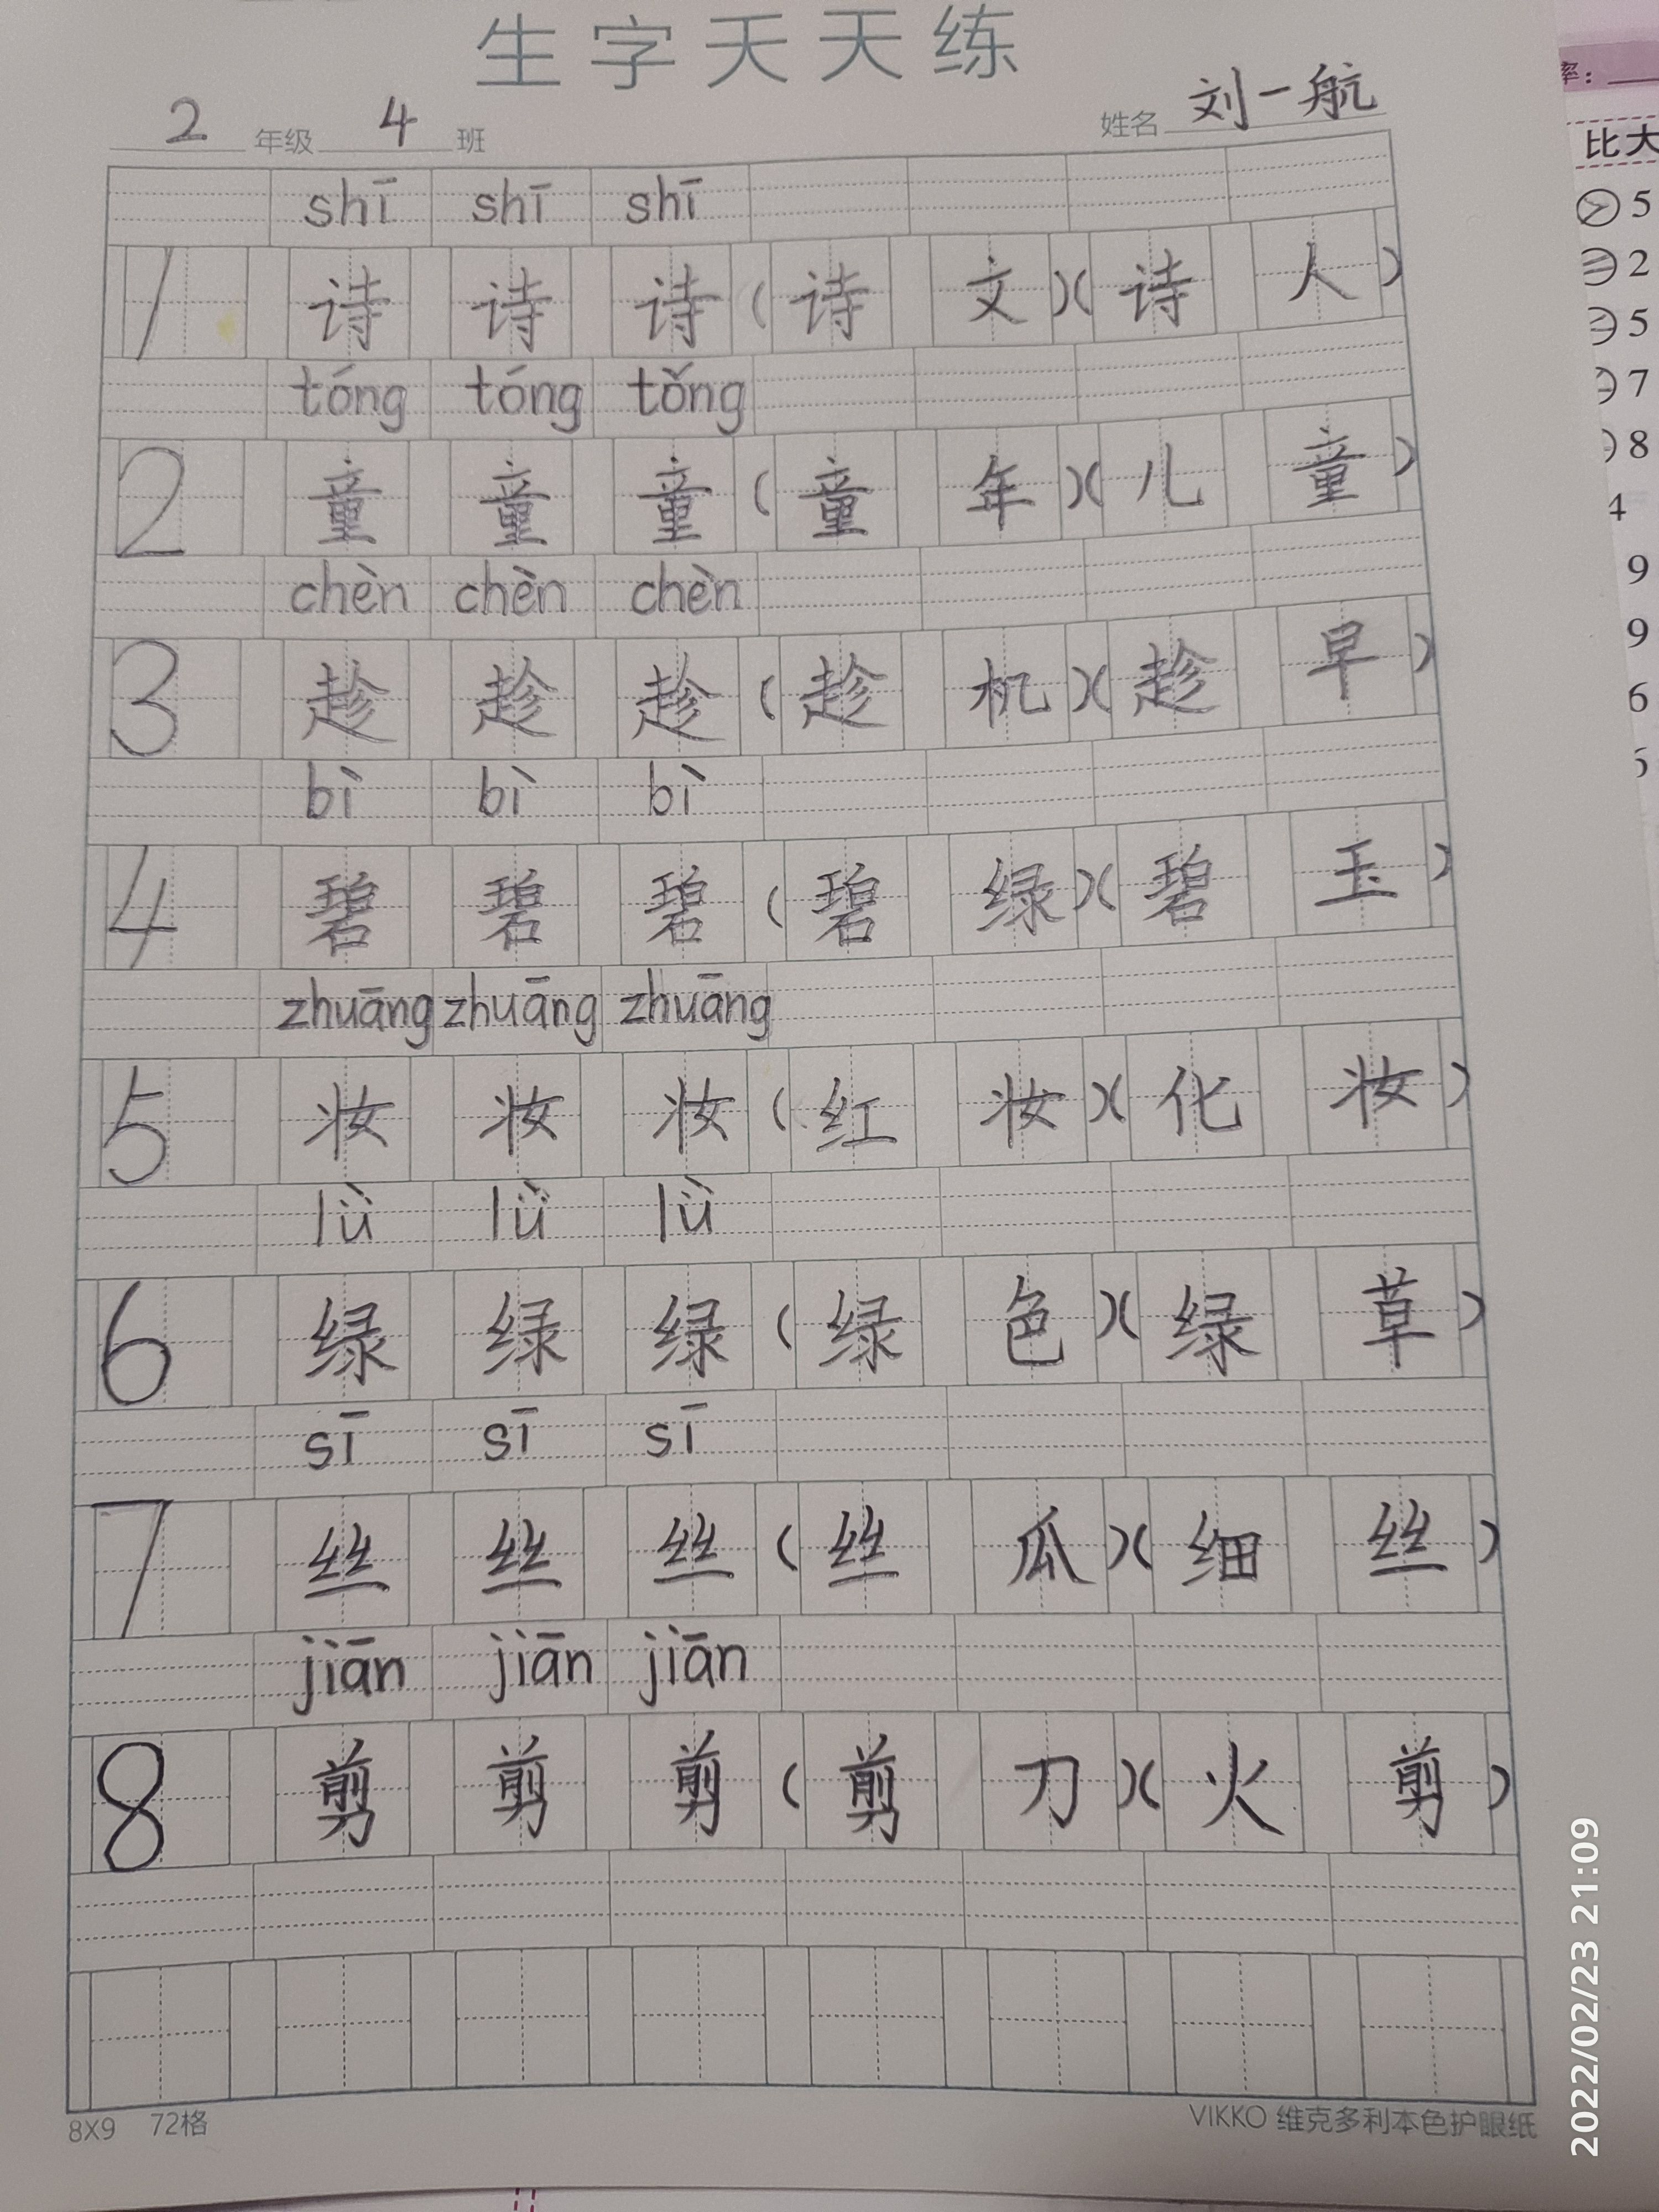 生字天天练
2 年级 4 班 姓名 刘一航
shī shī shī
1 诗 诗 诗 (诗 文)(诗 人)
tóng tóng tǒng
2 童 童 童 (童 年)(儿 童)
chèn chèn chèn
3 趁 趁 趁 (趁 机)(趁 早)
bì bì bì
4 碧 碧 碧 (碧 绿)(碧 玉)
zhuāng zhuāng zhuāng
5 妆 妆 妆 (红 妆)(化 妆)
lǜ lǜ lǜ
6 绿 绿 绿 (绿 色)(绿 草)
sī sī sī
7 丝 丝 丝 (丝 瓜)(细 丝)
jiān jiān jiān
8 剪 剪 剪 (剪 刀)(火 剪)
8X9 72格 VIKKO 维克多利本色护眼纸
率:
比大
5
2
5
7
8
4
9
9
6
2022/02/23 21:09